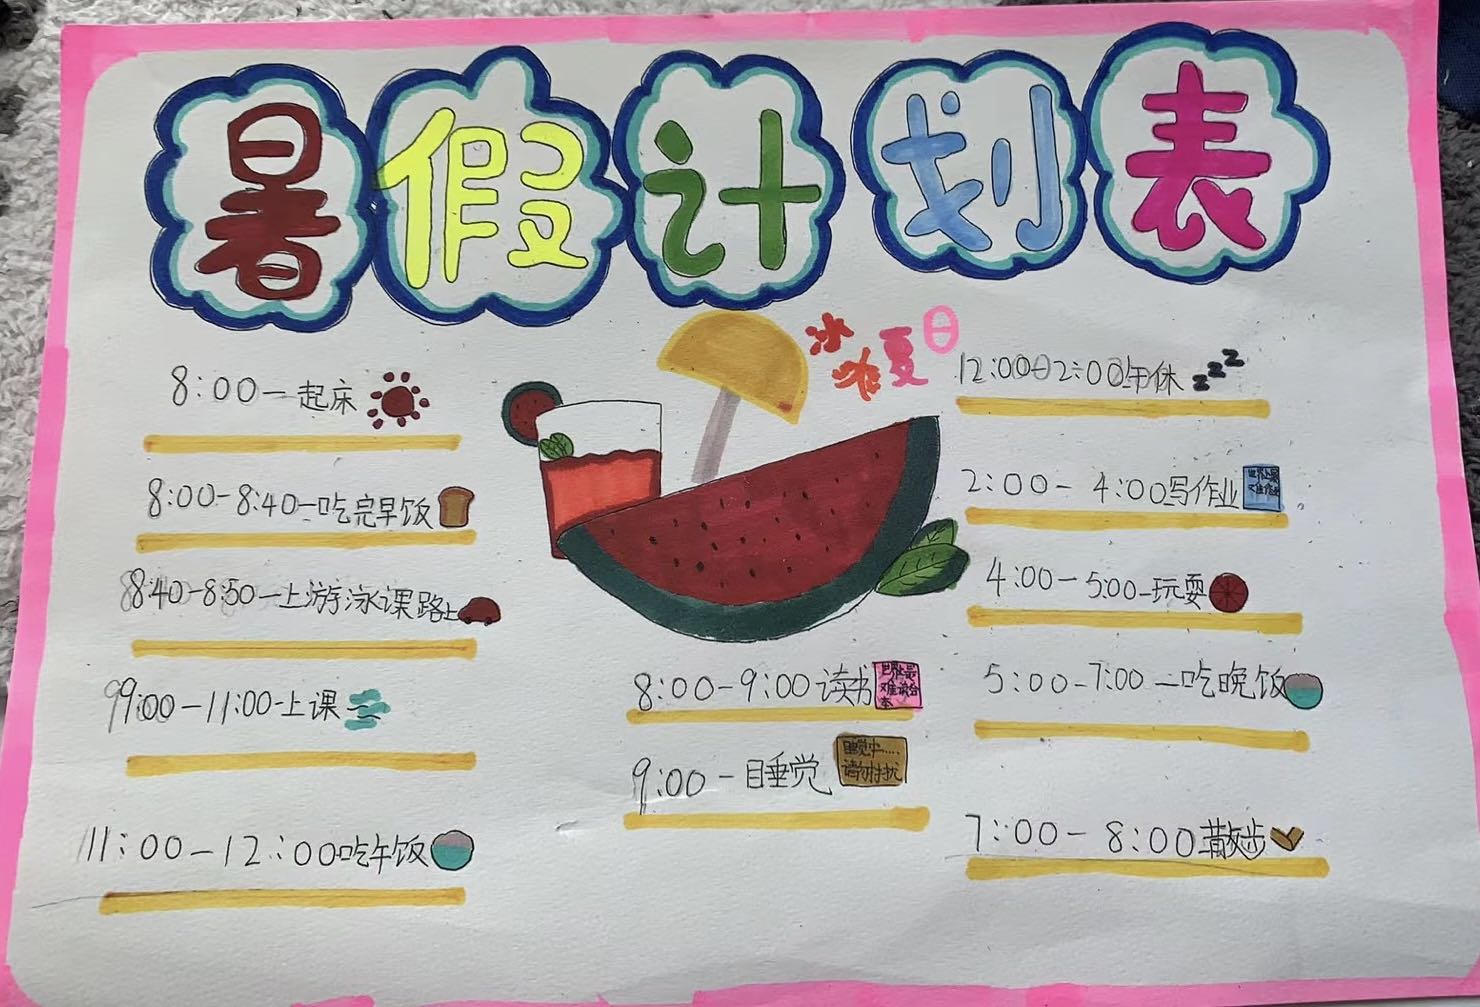 暑假计划表
冰爽夏日
8:00—起床
8:00-8:40—吃完早饭
8:40-8:50—上游泳课路上
9:00-11:00-上课
11:00-12:00吃午饭
8:00-9:00读书
9:00-睡觉
睡觉中.....
请勿打扰
12:00-2:00午休
zzz
2:00-4:00写作业
4:00-5:00-玩耍
5:00-7:00—吃晚饭
7:00-8:00散步